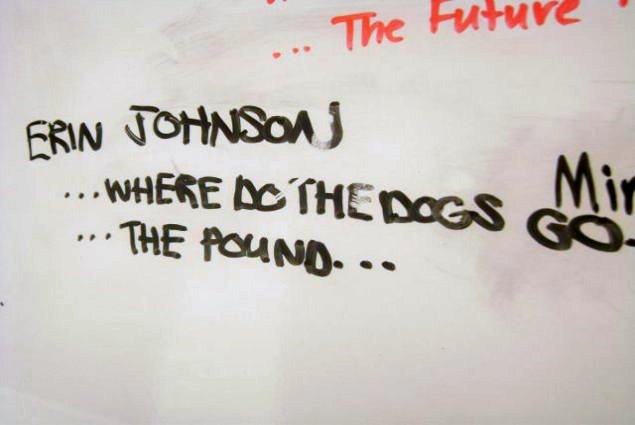 ... The Future
ERIN JOHNSON
...WHERE DO THE DOGS GO
... THE POUND...